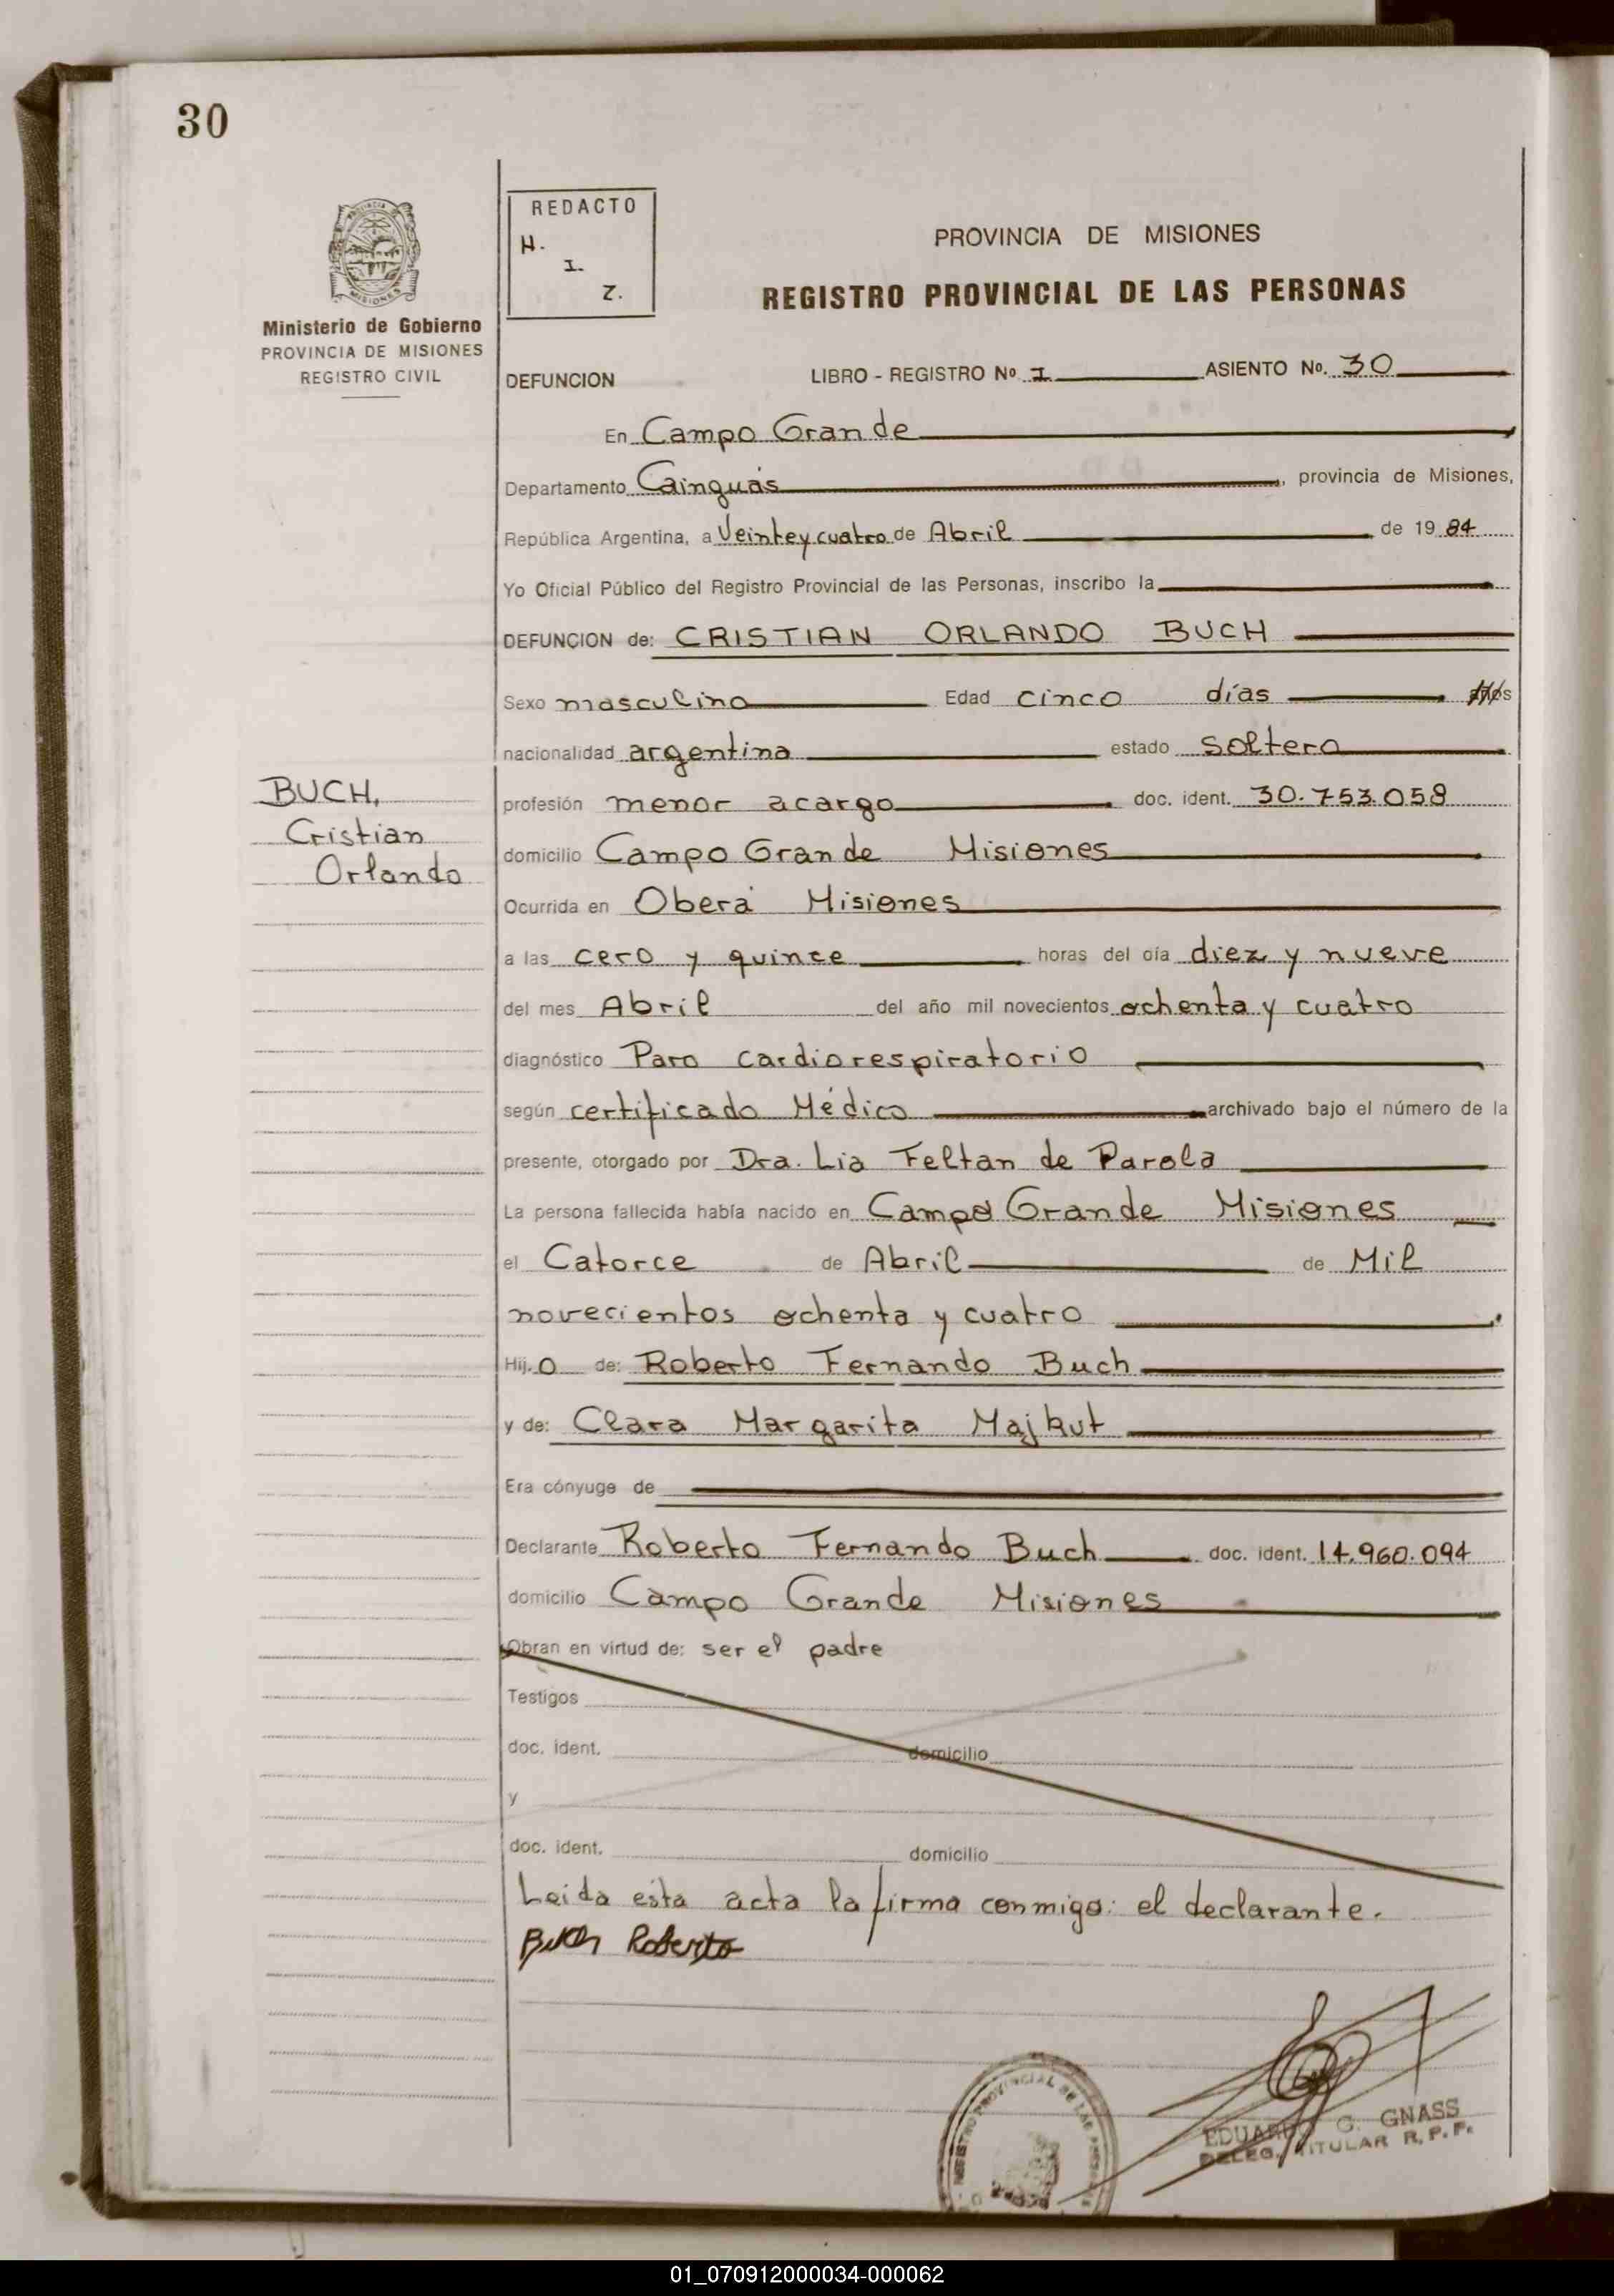 30
PROVINCIA
MISIONES
Ministerio de Gobierno
PROVINCIA DE MISIONES
REGISTRO CIVIL
REDACTO
H.
I.
Z.
PROVINCIA DE MISIONES
REGISTRO PROVINCIAL DE LAS PERSONAS
DEFUNCION LIBRO - REGISTRO Nº I ASIENTO Nº. 30
En Campo Grande
Departamento Cainguás, provincia de Misiones,
República Argentina, a Veinte y cuatro de Abril de 19 84
Yo Oficial Público del Registro Provincial de las Personas, inscribo la
DEFUNCION de: CRISTIAN ORLANDO BUCH
Sexo masculino Edad cinco días años
nacionalidad argentina estado soltero
BUCH,
Cristian
Orlando
profesión menor a cargo doc. ident. 30.753.058
domicilio Campo Grande Misiones
Ocurrida en Oberá Misiones
a las cero y quince horas del día diez y nueve
del mes Abril del año mil novecientos ochenta y cuatro
diagnóstico Paro cardiorespiratorio
según certificado Médico archivado bajo el número de la
presente, otorgado por Dra. Lia Feltan de Parola
La persona fallecida había nacido en Campo Grande Misiones
el Catorce de Abril de Mil
novecientos ochenta y cuatro.
Hij.o de: Roberto Fernando Buch
y de: Clara Margarita Majkut
Era cónyuge de
Declarante Roberto Fernando Buch doc. ident. 14.960.094
domicilio Campo Grande Misiones
Obran en virtud de: ser el padre
Testigos
doc. ident. domicilio
y
doc. ident. domicilio
Leida esta acta la firma conmigo: el declarante.
Buch Roberto
REGISTRO PROVINCIAL DE LAS PERSONAS
EDUARDO G. GNASS
DELEG. TITULAR R.P.P.
01_070912000034-000062